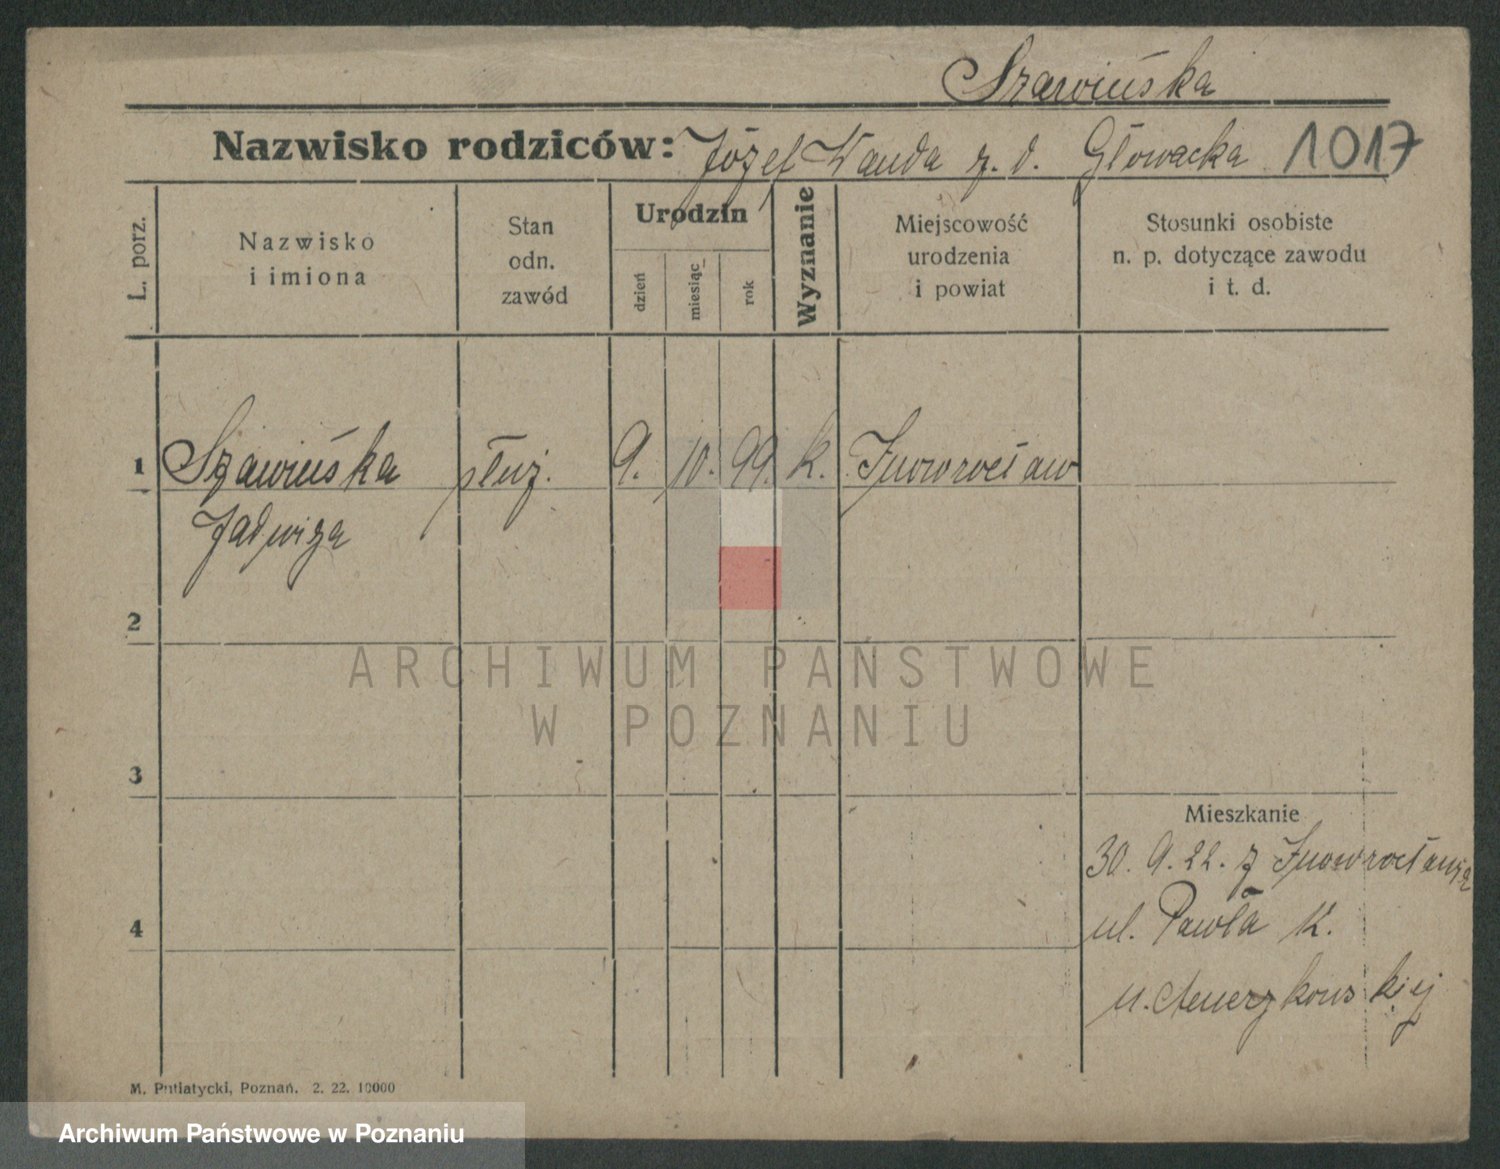 Szawińska
Nazwisko rodziców: Józef Wanda z. d. Głowacka 1017
L. porz.
Nazwisko
i imiona
Stan
odn.
zawód
Urodzin
dzień
miesiąc
rok
Wyznanie
Miejscowość
urodzenia
i powiat
Stosunki osobiste
n. p. dotyczące zawodu
i t. d.
1 Szawińska służ. 9. 10. 99. k. Inowrocław
Jadwiga
2
ARCHIWUM PAŃSTWOWE
W POZNANIU
3
Mieszkanie
30. 9. 22. z Inowrocławia
ul. Pawła K.
4
u.
M. Putiatycki, Poznań. 2. 22. 10000
Archiwum Państwowe w Poznaniu